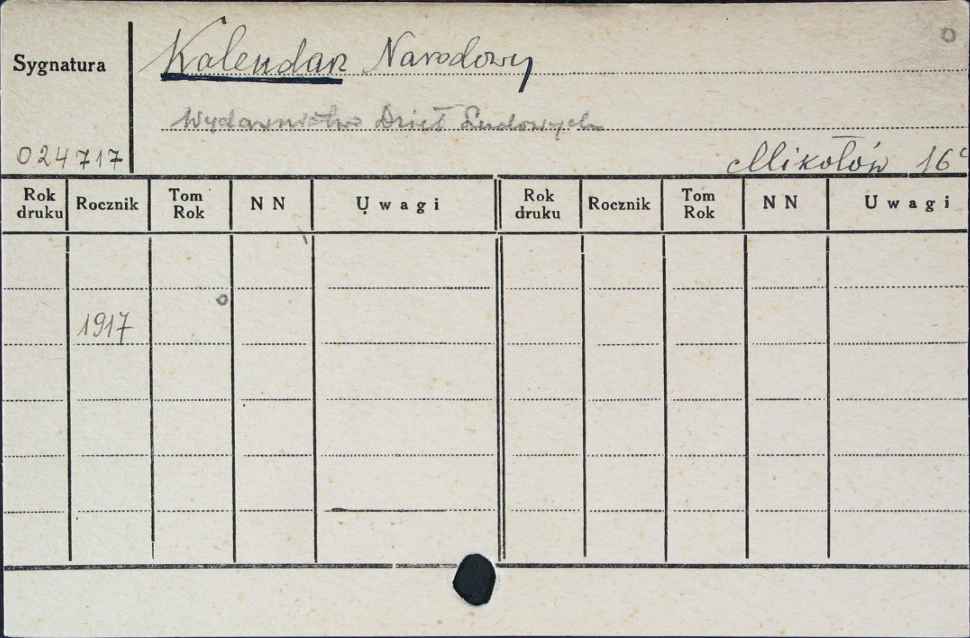 Sygnatura
Kalendarz Narodowy
Wydawnictwo Dzieł Ludowych
024717
Mikołów 16°
Rok druku Rocznik Tom Rok N N Uwagi Rok druku Rocznik Tom Rok N N Uwagi
1917